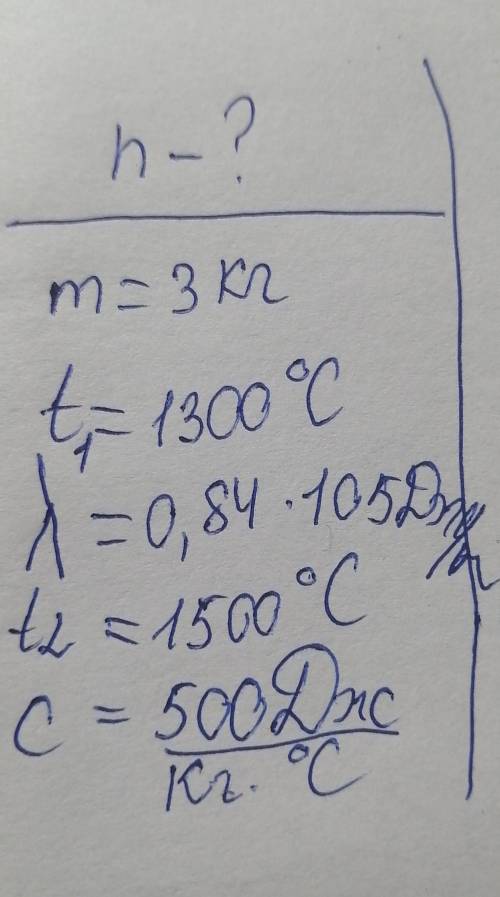 n - ?
m = 3 кг
t₁ = 1300 °C
λ = 0,84 · 105 Дж/кг
t₂ = 1500 °C
c = 500 Дж
кг · °C